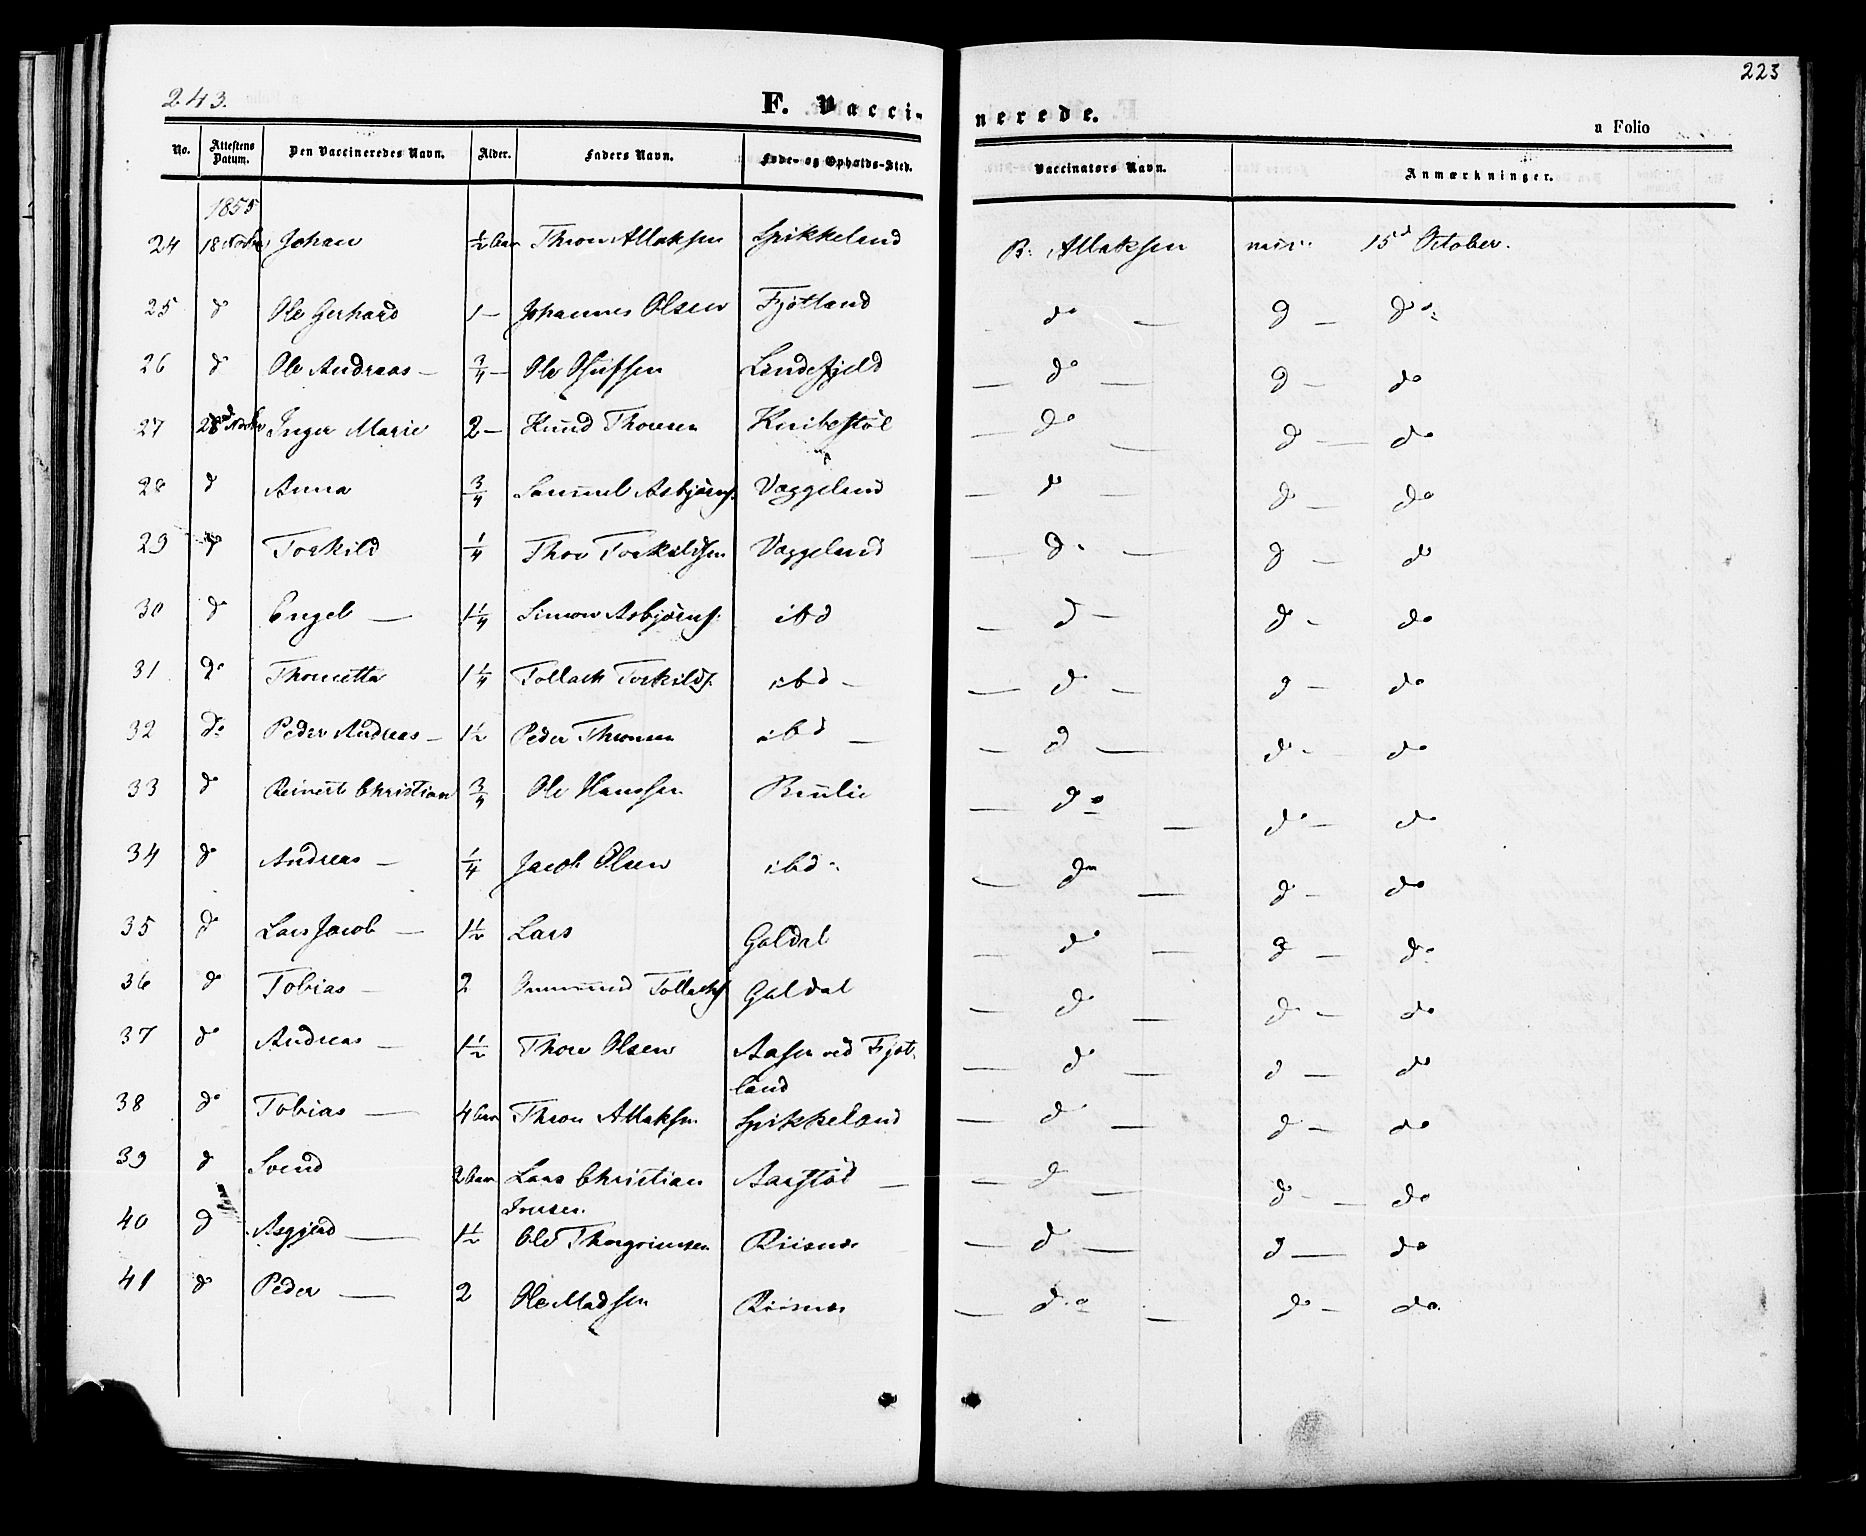 243.
223
F. Vaccinerede.
a Folio
No. Attestens Datum. Den Vaccineredes Navn. Alder. Faders Navn. Føde- og Opholds-Sted. Vaccinators Navn. Anmærkninger.
1855
24 18 Johan ½ Aar Thron Atlaksen Spikkeland B. Atlaksen 15d October.
25 do Ole Gerhard 1 — Johannes Olsen Fjotland do — d — do
26 do Ole Andreas — ¾ — Ole Lindefjeld — do — d — do
27 28 Inger Marie 2 — Knud Thomsen — do — d — do
28 d Anna ¾ Samuel Asbjørns. Væggeland — do — d do
29 do Torkild ¼ Thor Torkildsen Væggeland — do — d — do
30 do Engel — 1¼ Simon Asbjørns. ibd — d — do - do
31 do Thomette 1¼ Tollach Torkilds. ibd — — d — d — do
32 do Peder Andreas — 1½ Peder Thronsen ibd — — d — do - do
33 do Reinert Christian ¾ Ole Hanssen — do — do — do
34 do Andreas — ¼ Jacob Olsen ibd — do — d — do
35 do Lars Jacob — 1½ Lars Galdal — do — d — do
36 do Tobias — 2 Tollachs. Galdal — d — do — do
37 do Andreas — 1½ Thore Olsen Aasen ved Fjot-
land — d — d — do
38 do Tobias — 4 Aar Thron Atlaksen Spikkeland — d — d — do
39 d Svend 2 Aar Lars Christian
Aarstøl — — d — d — do
40 d Asgjerd — 1½ Ole Thorgrimsen Risnes — d — d — do
41 do Peder — 2 Ole Madsen Risnes — do — do — do